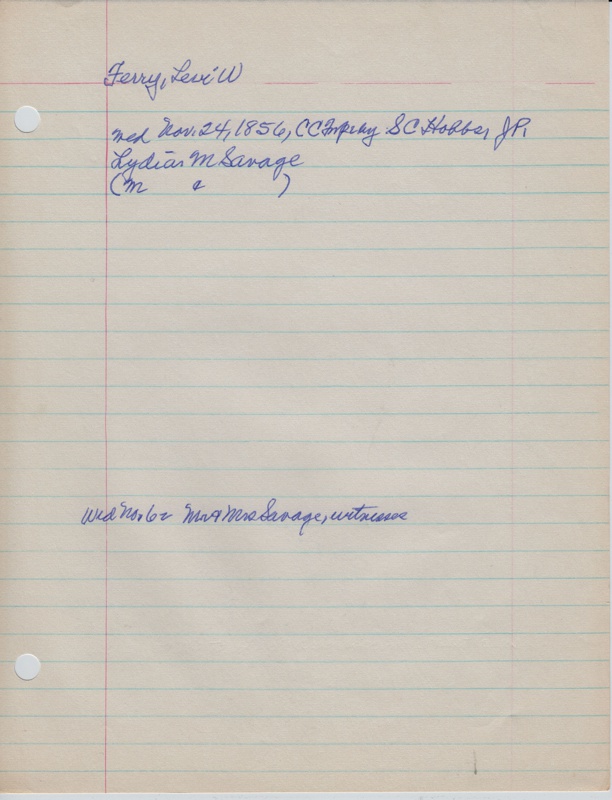 Ferry, Levi W
wed Nov. 24, 1856, CC Twp by S C Hobbs, J P,
Lydia M Savage
(M &        )
Wed No. 62 Mr & Mrs Savage, witnesses